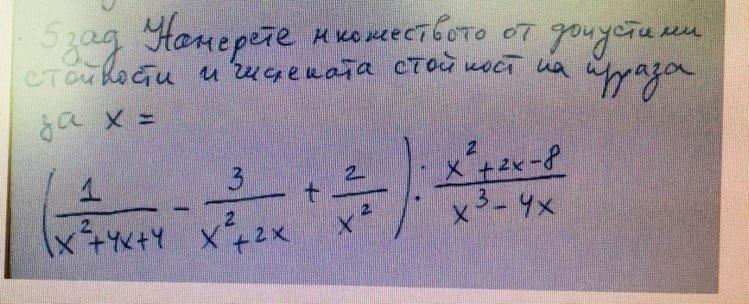 5 зад Намерете множеството от допустими
стойности и числената стойност на израза
за x =
(1/(x²+4x+4) - 3/(x²+2x) + 2/x²) : (x²+2x-8)/(x³-4x)